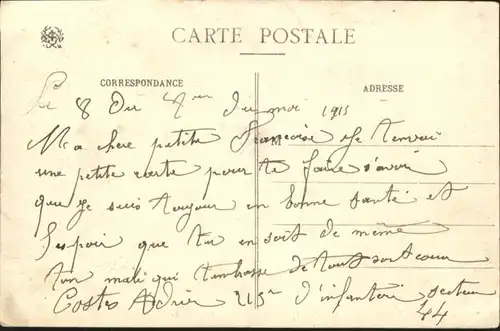 CARTE POSTALE
CORRESPONDANCE
ADRESSE
Le 8 du du moi 1915
M
Ma chere petite Francoise Je tenvoi
une petite carte pour te faire savoir
que je suis toujour en bonne santé et
Jespoir que tu en soit de même
ton mari qui tembrasse de tout son coeur
Costes Adrien 215e d'infanteri secteur
44